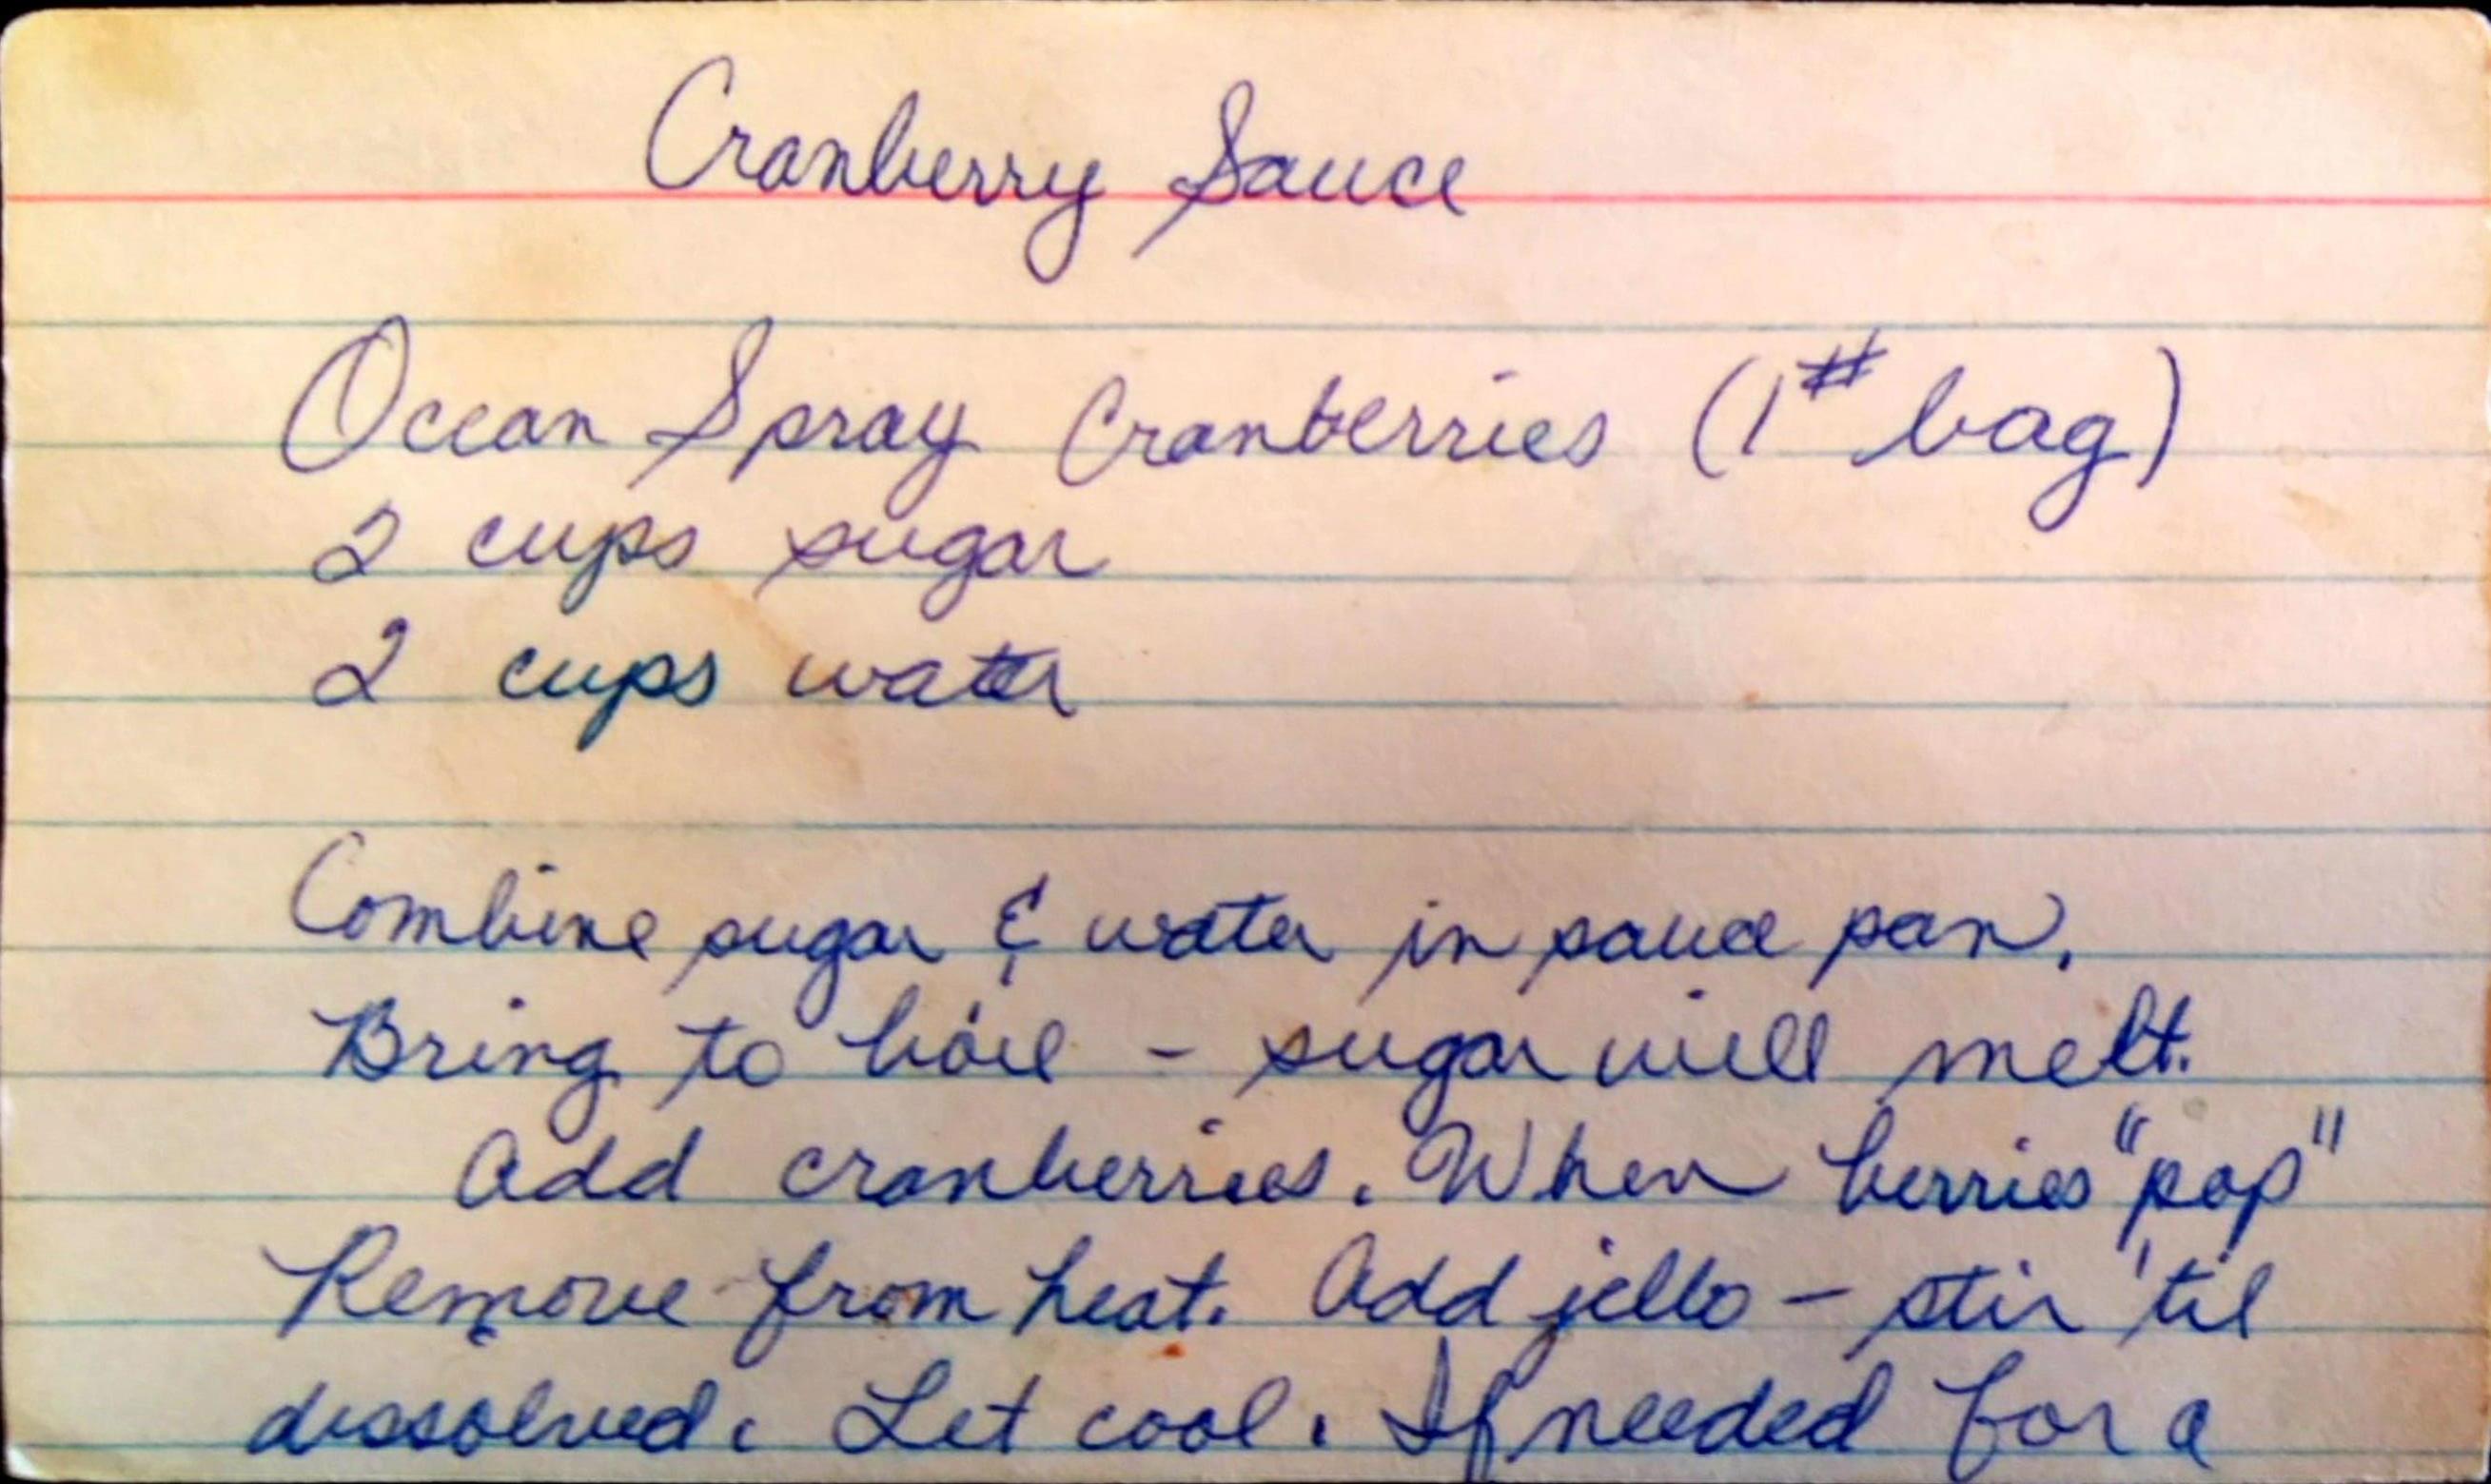 Cranberry Sauce
Ocean Spray Cranberries (1# bag)
2 cups sugar
2 cups water
Combine sugar & water in sauce pan.
Bring to boil - sugar will melt.
Add cranberries. When berries "pop"
Remove from heat. Add jello - stir 'til
dissolved. Let cool. If needed for a